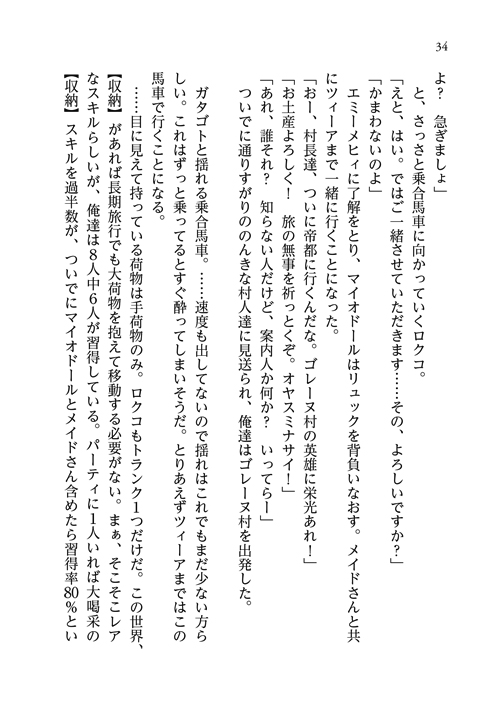 34
よ？　急ぎましょ」
　と、さっさと乗合馬車に向かっていくロクコ。
「えと、はい。ではご一緒させていただきます……その、よろしいですか？」
「かまわないのよ」
　エミーメヒィに了解をとり、マイオドールはリュックを背負いなおす。メイドさんと共
にツィーアまで一緒に行くことになった。
「おー、村長達、ついに帝都に行くんだな。ゴレーヌ村の英雄に栄光あれ！」
「お土産よろしく！　旅の無事を祈っとくぞ。オヤスミナサイ！」
「あれ、誰それ？　知らない人だけど、案内人か何か？　いってらー」
　ついでに通りすがりののんきな村人達に見送られ、俺達はゴレーヌ村を出発した。
　ガタゴトと揺れる乗合馬車。……速度も出してないので揺れはこれでもまだ少ない方ら
しい。これはずっと乗ってるとすぐ酔ってしまいそうだ。とりあえずツィーアまではこの
馬車で行くことになる。
　……目に見えて持っている荷物は手荷物のみ。ロクコもトランク１つだけだ。この世界、
【収納】があれば長期旅行でも大荷物を抱えて移動する必要がない。まぁ、そこそこレア
なスキルらしいが、俺達は８人中６人が習得している。パーティに１人いれば大喝采の
【収納】スキルを過半数が、ついでにマイオドールとメイドさん含めたら習得率80％とい